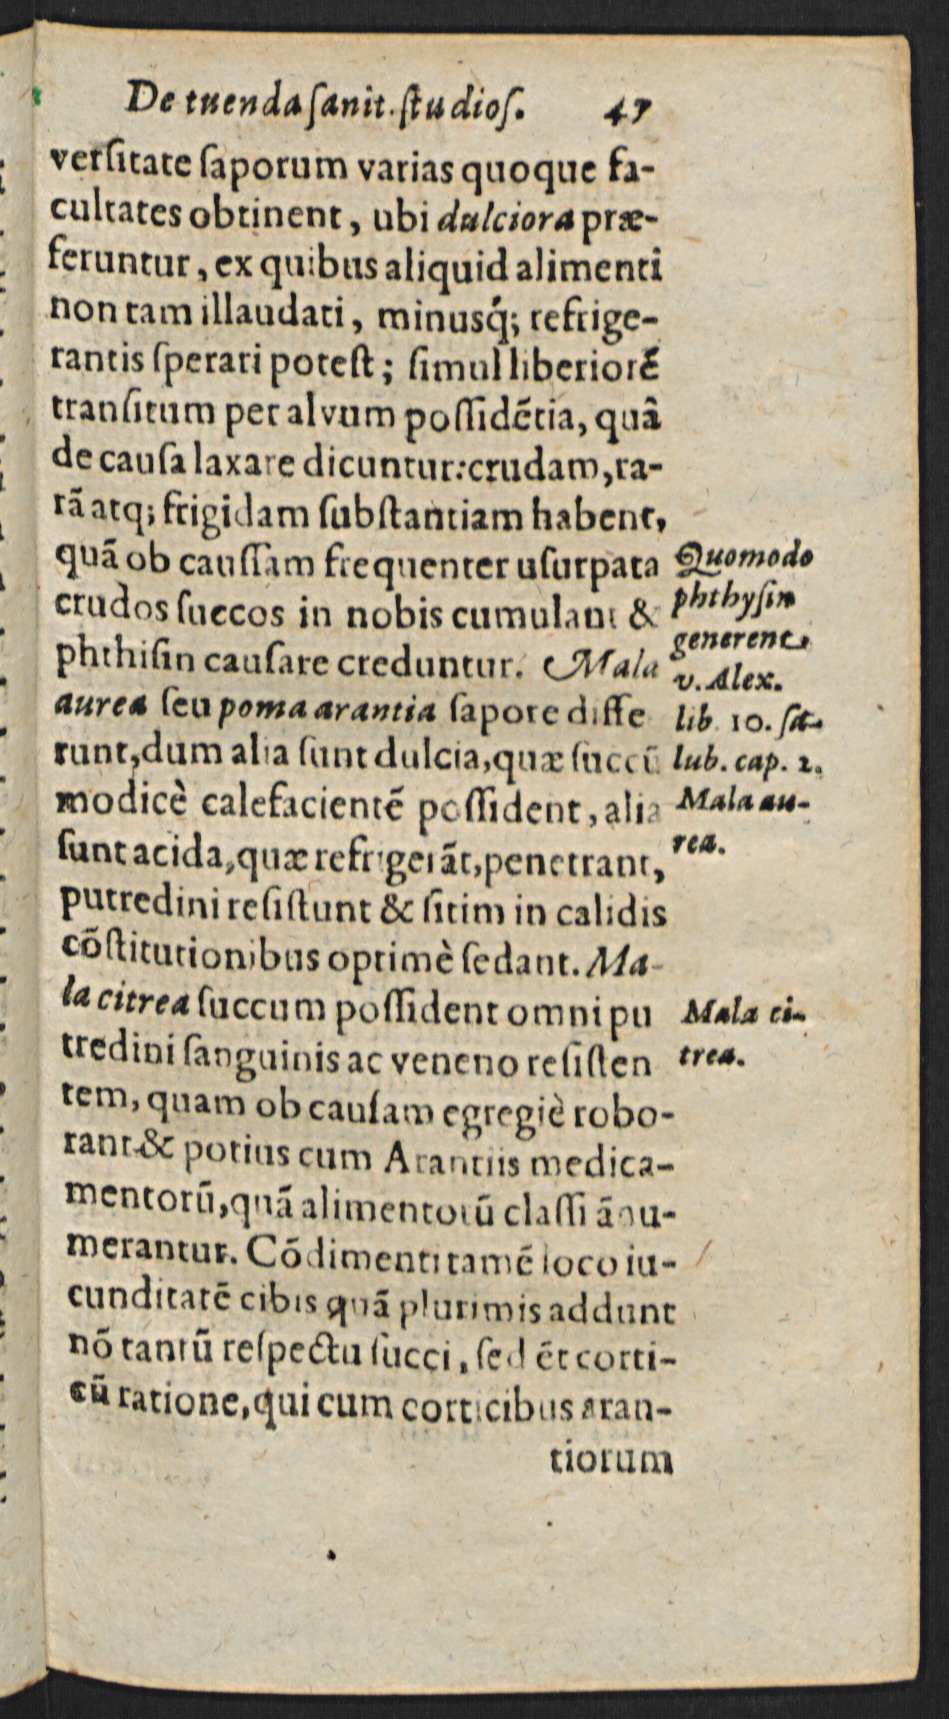 De tuenda ſanit. ſtudioſ. 47
verſitate ſaporum varias quoque fa-
cultates obtinent, ubi dulciora præ-
feruntur, ex quibus aliquid alimenti
non tam illaudati, minusq́; refrige-
rantis ſperari poteſt; ſimul liberiorē
tranſitum per alvum poſſidētia, quâ
de cauſa laxare dicuntur: crudam, ra-
rā atq; frigidam ſubſtantiam habent,
quā ob cauſſam frequenter uſurpata
crudos ſuccos in nobis cumulant &
phthiſin cauſare creduntur. Mala
aurea ſeu poma arantia ſapore diffe
runt, dum alia ſunt dulcia, quæ ſuccū
modicè calefacientē poſſident, alia
ſunt acida, quæ refrigerāt, penetrant,
putredini reſiſtunt & ſitim in calidis
cōſtitutionibus optimè ſedant. Ma-
la citrea ſuccum poſſident omni pu
tredini ſanguinis ac veneno reſiſten
tem, quam ob cauſam egregiè robo-
rant & potius cum Arantiis medica-
mentorū, quā alimentorū claſſi ānu-
merantur. Cōdimenti tamē loco iu-
cunditatē cibis quā plurimis addunt
nō tantū reſpectu ſucci, ſed ēt corti-
cū ratione, qui cum corticibus aran-
tiorum
Quomodo
phthyſin
generent
v. Alex.
lib. 10. ſa-
lub. cap. 2.
Mala au-
rea.
Mala ci-
trea.